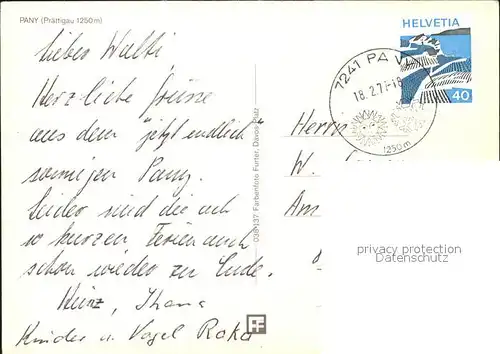 PANY (Prättigau 1250 m)
Lieber Walti,
Herzliche Grüsse
aus dem "jetzt endlich"
sonnigen Pany.
Leider sind die ach
so kurzen Ferien auch
schon wieder zu Ende.
Heinz,
Kinder u. Vogel Roko
038 137 Farbenfoto Furter, Davos Platz
HELVETIA
40
7241 PANY
18.2.77-18
1250 m
Herrn
W.
Am
privacy protection
Datenschutz